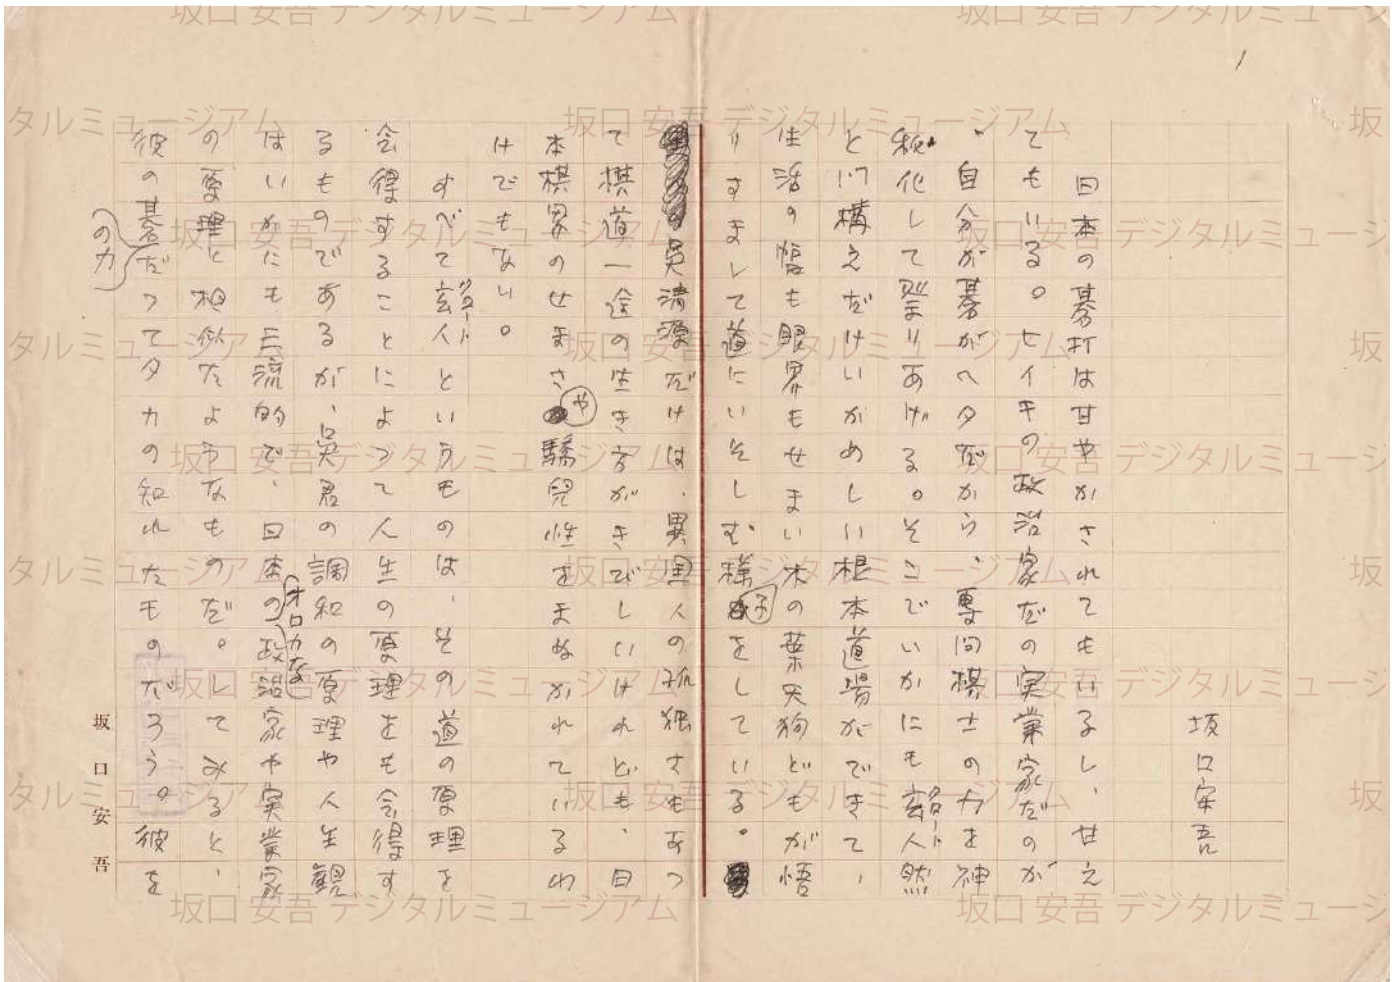 1
坂口安吾
日本の碁打は甘やかされてもいるし、甘え
てもいる。ヒイキの政治家だの実業家だのが
、自分が碁がヘタだから、専問棋士の力を神
秘化して祭りあげる。そこでいかにも玄人然
クロート
と門構えだけいかめしい根本道場ができて、
生活の幅も眼界もせまい木の葉天狗どもが悟
りすまして道にいそしむ様子をしている。
呉清源だけは、異国人の孤独さもあつ
て棋道一途の生き方がきびしいけれども、日
本棋界のせまさや驕児性をまぬかれているわ
けでもない。
すべて玄人というものは、その道の原理を
クロート
会得することによつて人生の原理をも会得す
るものであるが、呉君の調和の原理や人生観
はいかにも三流的で、日本のオロカな政治家や実業家
の原理と相似たようなものだ。してみると、
彼の碁の力だつてタカの知れたものだろう。彼を
坂口安吾
坂口 安吾 デジタルミュージアム